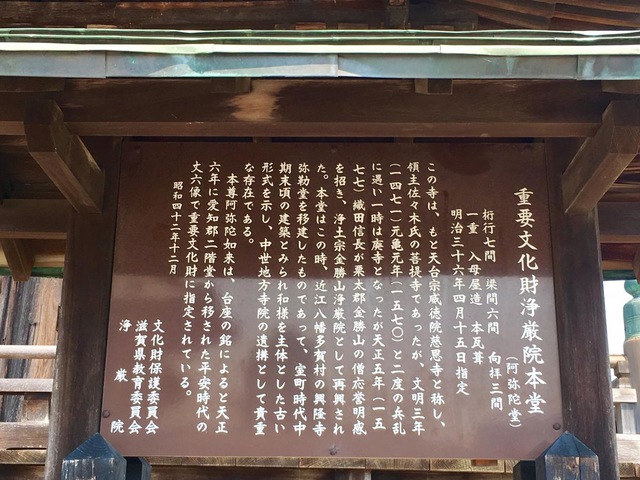 重要文化財浄厳院本堂
（阿弥陀堂）
桁行七間　梁間六間　向拝三間
一重　入母屋造　本瓦葺
明治三十六年四月十五日指定
この寺は、もと天台宗威徳院慈恩寺と称し、
領主佐々木氏の菩提寺であったが、文明三年
（一四七一）元亀元年（一五七〇）と二度の兵乱
に遇い一時は廃寺となったが天正五年（一五
七七）織田信長が栗太郡金勝山の僧応誉明感
を招き、浄土宗金勝山浄厳院として再興され
た。本堂はこの時、近江八幡多賀村の興隆寺
弥勒堂を移建したものであって、室町時代中
期末頃の建築とみられ和様を主体とした古い
形式を示し、中世地方寺院の遺構として貴重
な存在である。
本尊阿弥陀如来は、台座の銘によると天正
六年に愛知郡二階堂から移された平安時代の
丈六像で重要文化財に指定されている。
昭和四十二年十二月
文化財保護委員会
滋賀県教育委員会
浄厳院